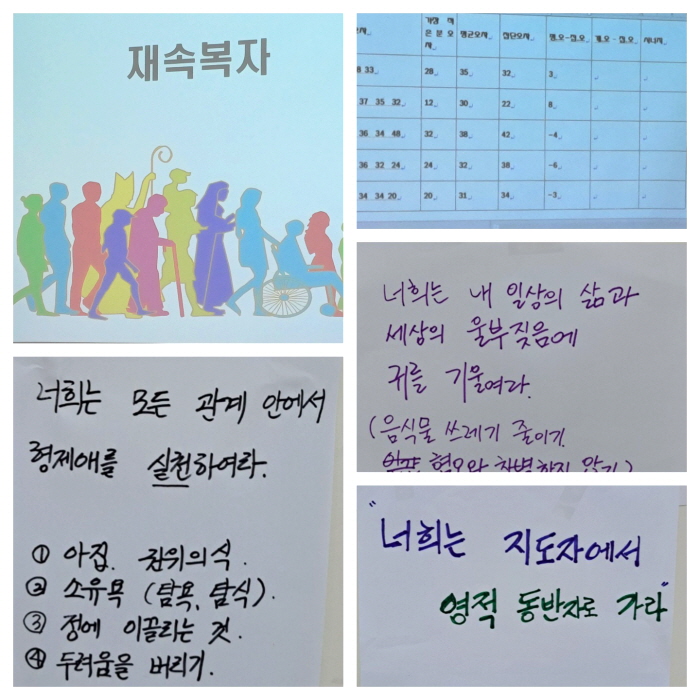 재속복자
너희는 모든 관계 안에서
형제애를 실천하여라.
① 아집. 권위의식.
② 소유욕 (탐욕, 탐식).
③ 정에 이끌리는 것.
④ 두려움을 버리기.
가장 적
은 분 오
평균오차 집단오차 평.오-집.오 개.오 - 집.오 시너지
8 33 28 35 32 3
37 35 32 12 30 22 8
36 34 48 32 38 42 -4
36 32 24 24 32 38 -6
34 34 20 20 31 34 -3
너희는 내 일상의 삶과
세상의 울부짖음에
귀를 기울여라.
(음식물 쓰레기 줄이기
혐오와 차별하지 않기)
"너희는 지도자에서
영적 동반자로 가라"